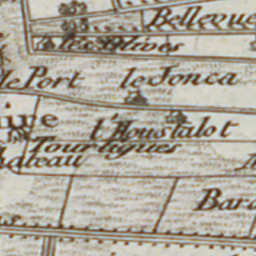 Belleuue
les Olives
le Port le Jonca
ire l'Houstalot
Tourtigues
hateau
Bara